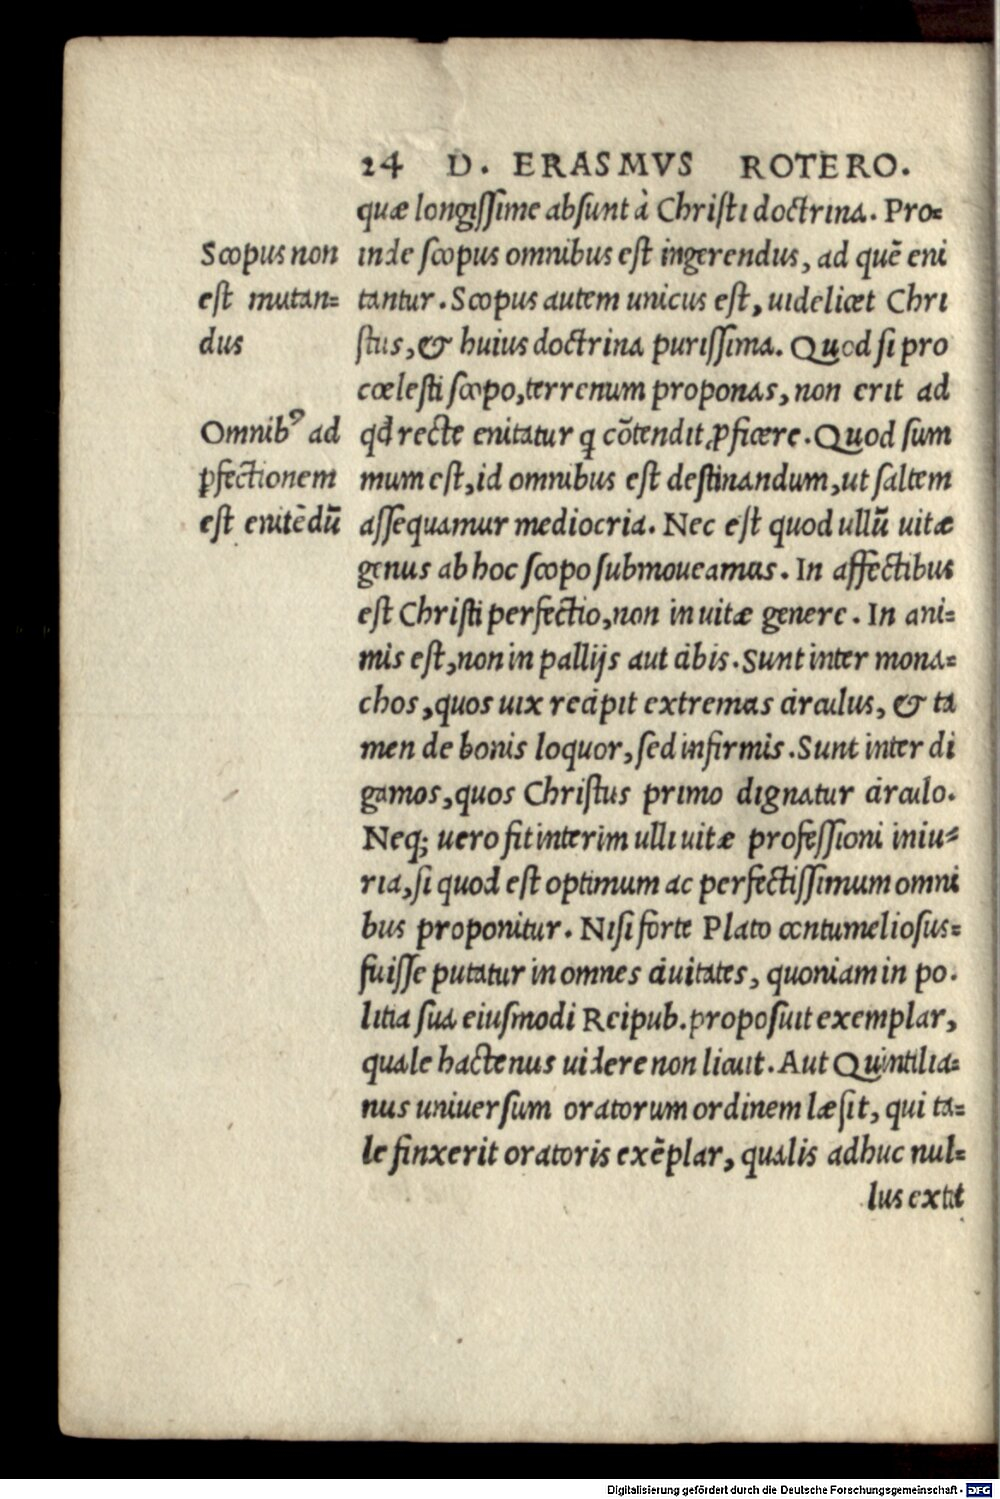 24 D. ERASMVS ROTERO.
quæ longissime absunt à Christi doctrina. Pro=
inde scopus omnibus est ingerendus, ad quē eni
tantur. Scopus autem unicus est, uidelicet Chri
stus, & huius doctrina purissima. Quod si pro
cœlesti scopo, terrenum proponas, non erit ad
qd recte enitatur q cōtendit ꝓficere. Quod sum
mum est, id omnibus est destinandum, ut saltem
assequamur mediocria. Nec est quod ullū uitæ
genus ab hoc scopo submoueamus. In affectibus
est Christi perfectio, non in uitæ genere. In ani=
mis est, non in pallijs aut cibis. Sunt inter mona=
chos, quos uix recipit extremus circulus, & ta
men de bonis loquor, sed infirmis. Sunt inter di
gamos, quos Christus primo dignatur circulo.
Neq; uero fit interim ulli uitæ professioni iniu=
ria, si quod est optimum ac perfectissimum omni
bus proponitur. Nisi forte Plato contumeliosus=
fuisse putatur in omnes ciuitates, quoniam in po.
litia sua eiusmodi Reipub. proposuit exemplar,
quale hactenus uidere non licuit. Aut Quintilia=
nus uniuersum oratorum ordinem læsit, qui ta=
le finxerit oratoris exēplar, qualis adhuc nul=
lus extit
Scopus non
est mutan=
dus
Omnibꝰ ad
ꝑfectionem
est enitēdū
Digitalisierung gefördert durch die Deutsche Forschungsgemeinschaft - DFG